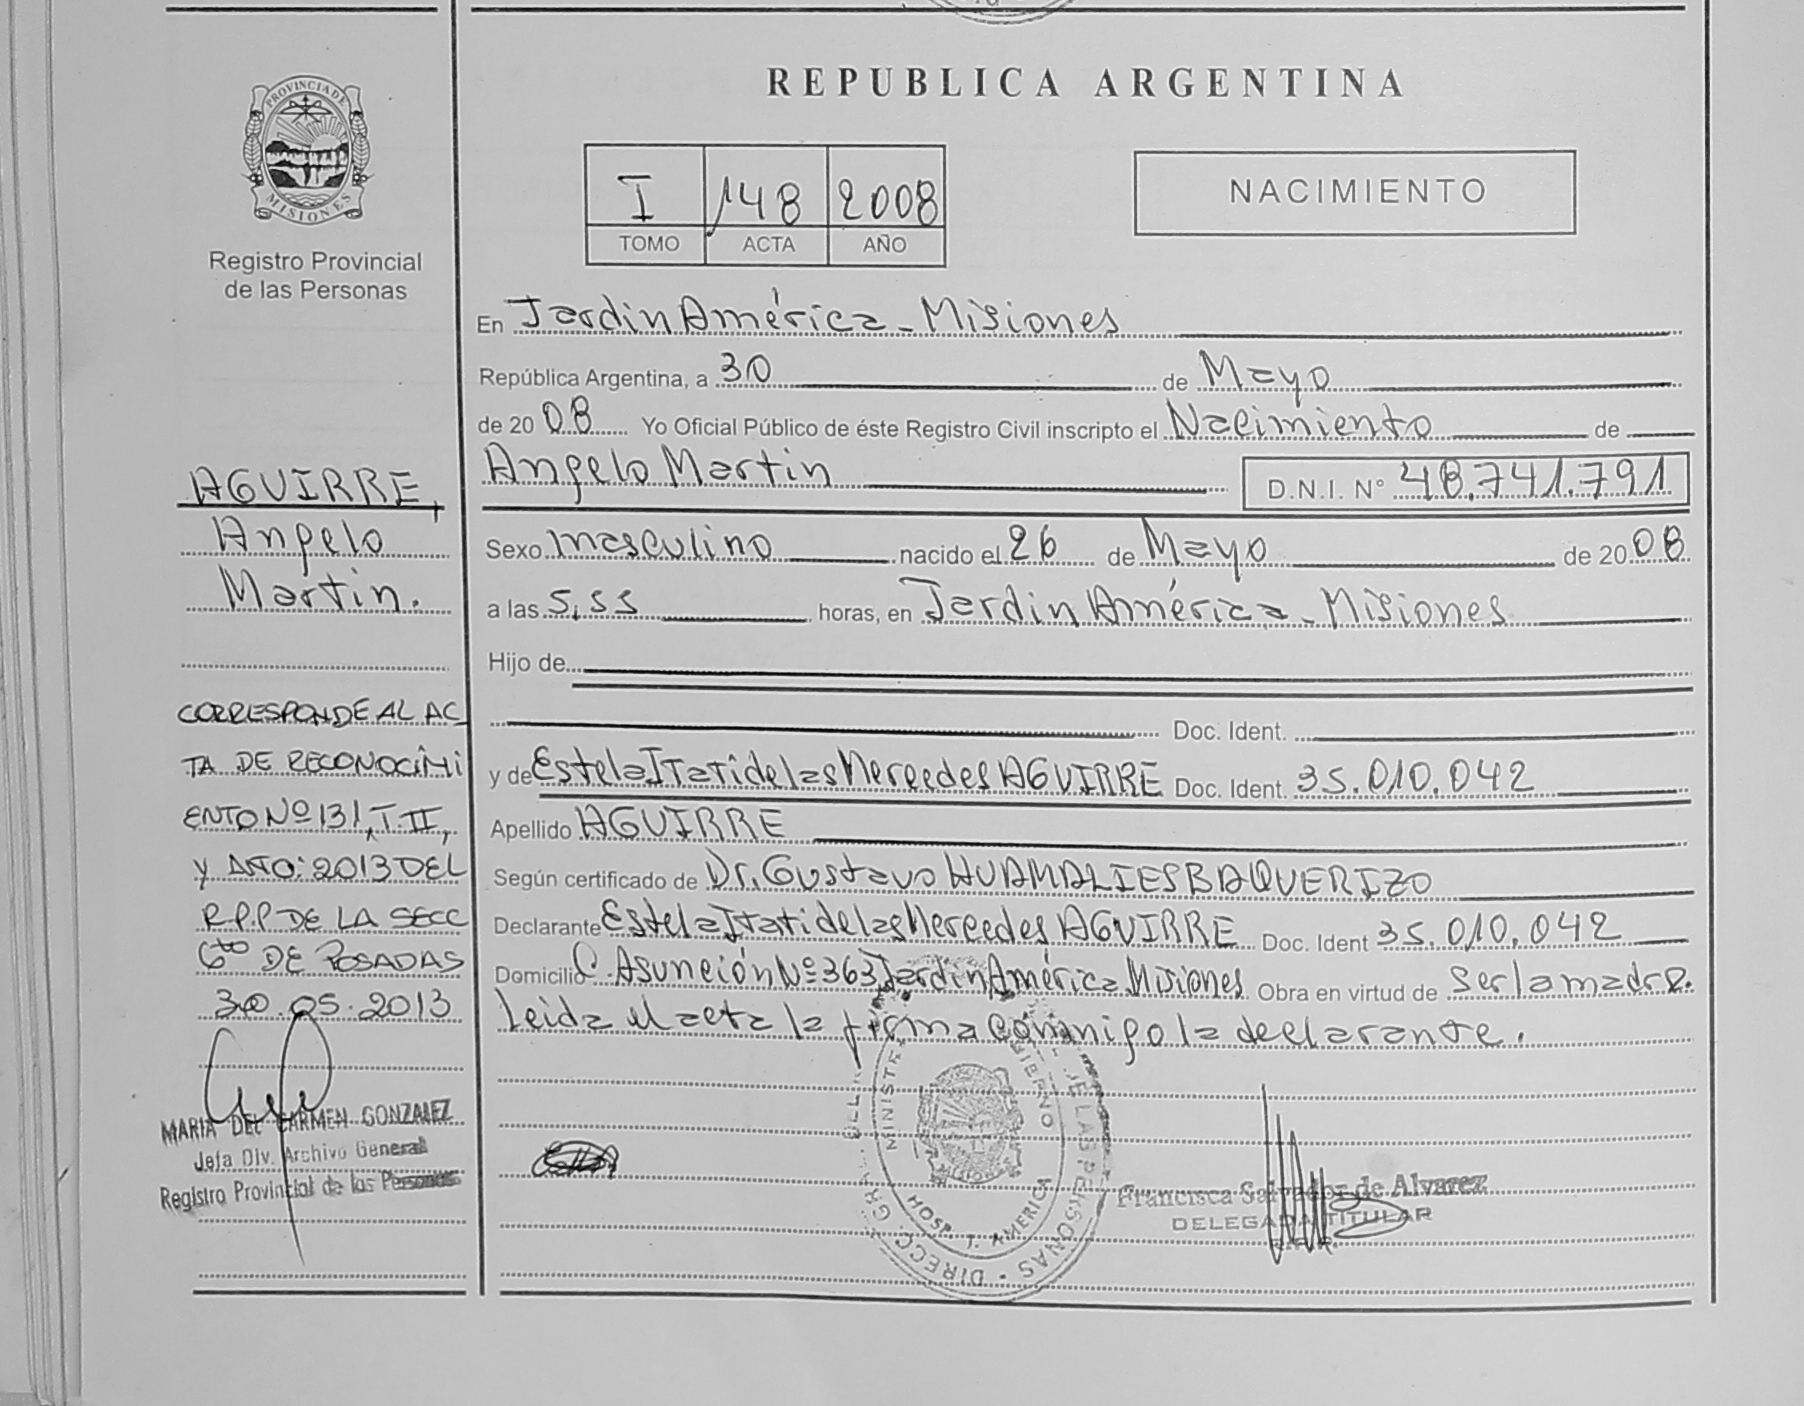 REPUBLICA ARGENTINA
PROVINCIA DE
MISIONES
Registro Provincial
de las Personas
I 148 2008
TOMO ACTA AÑO
NACIMIENTO
En Jardin América - Misiones
República Argentina, a 30 de Mayo
de 20 08 Yo Oficial Público de éste Registro Civil inscripto el Nacimiento de
Angelo Martin D.N.I. N° 48.741.791
Sexo masculino nacido el 26 de Mayo de 20 08
a las 5,55 horas, en Jardin América - Misiones
Hijo de
Doc. Ident.
y de Estela Itati de las Mercedes AGUIRRE Doc. Ident. 35.010.042
Apellido AGUIRRE
Según certificado de Dr. Gustavo HUAMALIES BAQUERIZO
Declarante Estela Itati de las Mercedes AGUIRRE Doc. Ident 35.010.042
Domicilio C. Asunción Nº 363 Jardin América Misiones Obra en virtud de ser la madre.
Leida el acta la firma conmigo la declarante.
AGUIRRE,
Angelo
Martin.
CORRESPONDE AL AC
TA DE RECONOCIMI
ENTO Nº 131, T. II,
Y AÑO: 2013 DEL
R.P.P DE LA SECC
6ta DE POSADAS
30.05.2013
MARIA DEL CARMEN GONZALEZ
Jefa Div. Archivo General
Registro Provincial de las Personas
HOSP. J. AMERICA
Francisca Salvador de Alvarez
DELEGADA TITULAR